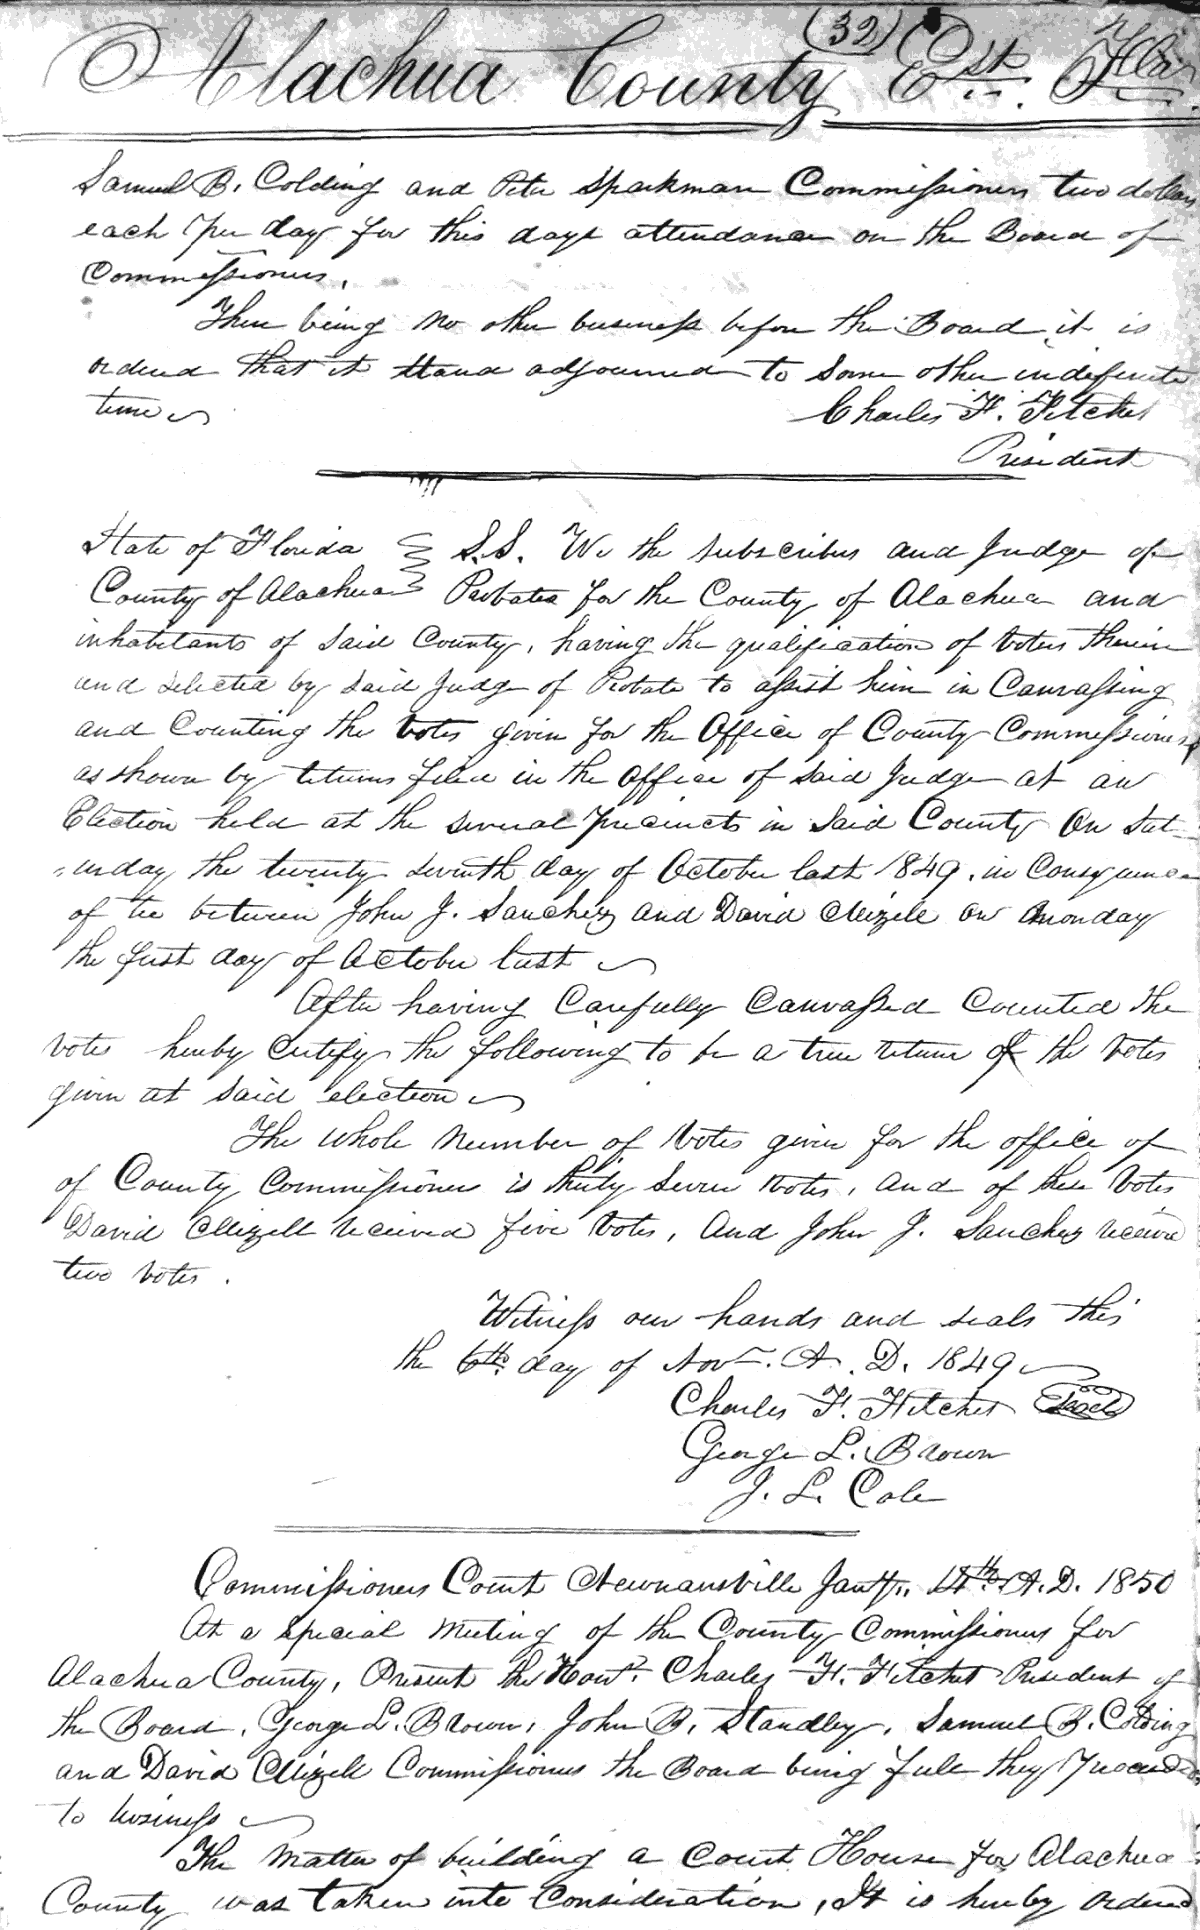 (32)
Alachua County Est. Flor
Samuel B. Colding and Peter Sparkman Commissioners two dollars
each per day for this days attendance on the Board of
Commissioners.
There being no other business before the Board it is
ordered that it stand adjourned to some other indefinite
time
Charles F. Fitchet
President
State of Florida S.S. We the subscribers and Judge of
County of Alachua Probates for the County of Alachua and
inhabitants of said County, having the qualification of voters therein
and selected by said Judge of Probate to assist him in Canvassing
and Counting the votes given for the Office of County Commissioners
as shown by returns filed in the office of said Judge at an
Election held at the several precincts in said County On Sat-
-urday the twenty seventh day of October last 1849, in Consequence
of tie between John J. Sanchez and David Mizell on Monday
the first day of October last
After having Carefully Canvassed Counted the
votes hereby certify the following to be a true return of the votes
given at said election
The whole number of votes given for the office of
of County Commissioner is thirty seven votes, and of these votes
David Mizell received five votes, and John J. Sanchez receive
two votes.
Witness our hands and seals this
the 6th day of Nov. A. D. 1849
Charles F. Fitchet Seal
George L. Brown
J. L. Cole
Commissioners Court Newnansville Jany. 14th A.D. 1850
At a special meeting of the County Commissioners for
Alachua County, Present the Hon. Charles F. Fitchet President of
the Board, George L. Brown, John B. Standley, Samuel B. Colding
and David Mizell Commissioners the Board being full they proceeded
to business
The matter of building a Court House for Alachua
County was taken into consideration, It is hereby ordered